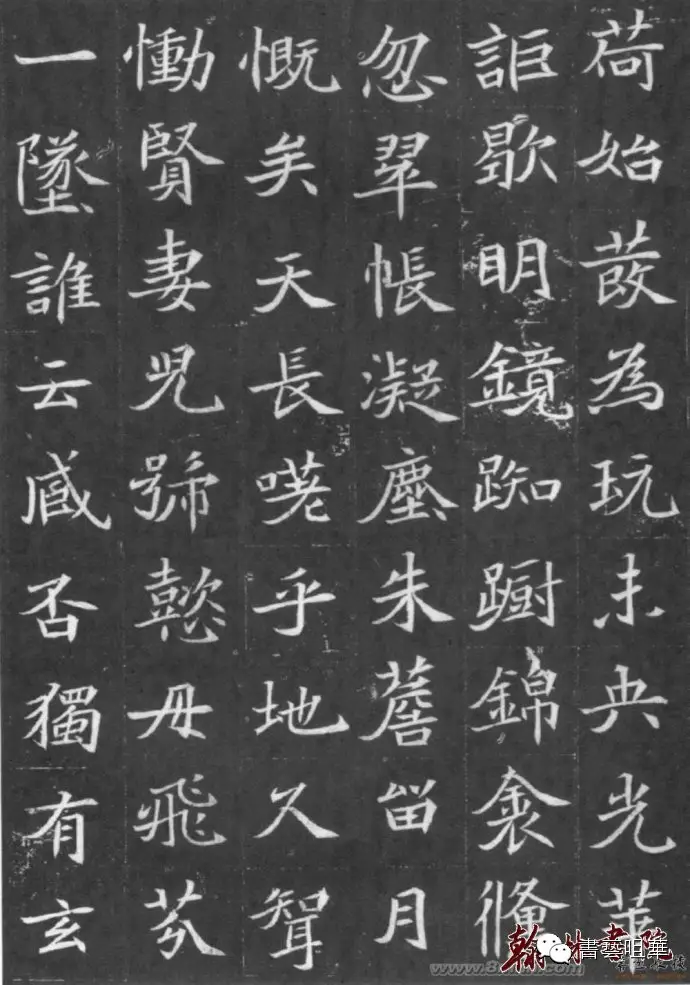 荷始為玩未央光華
詎歇明鏡踟蹰錦衾脩
忽翠帳凝塵朱薝畄月
慨矣天長嗟乎地久聟
慟賢妻児號懿母飛芬
一墜誰云臧否獨有玄
書藝咀華